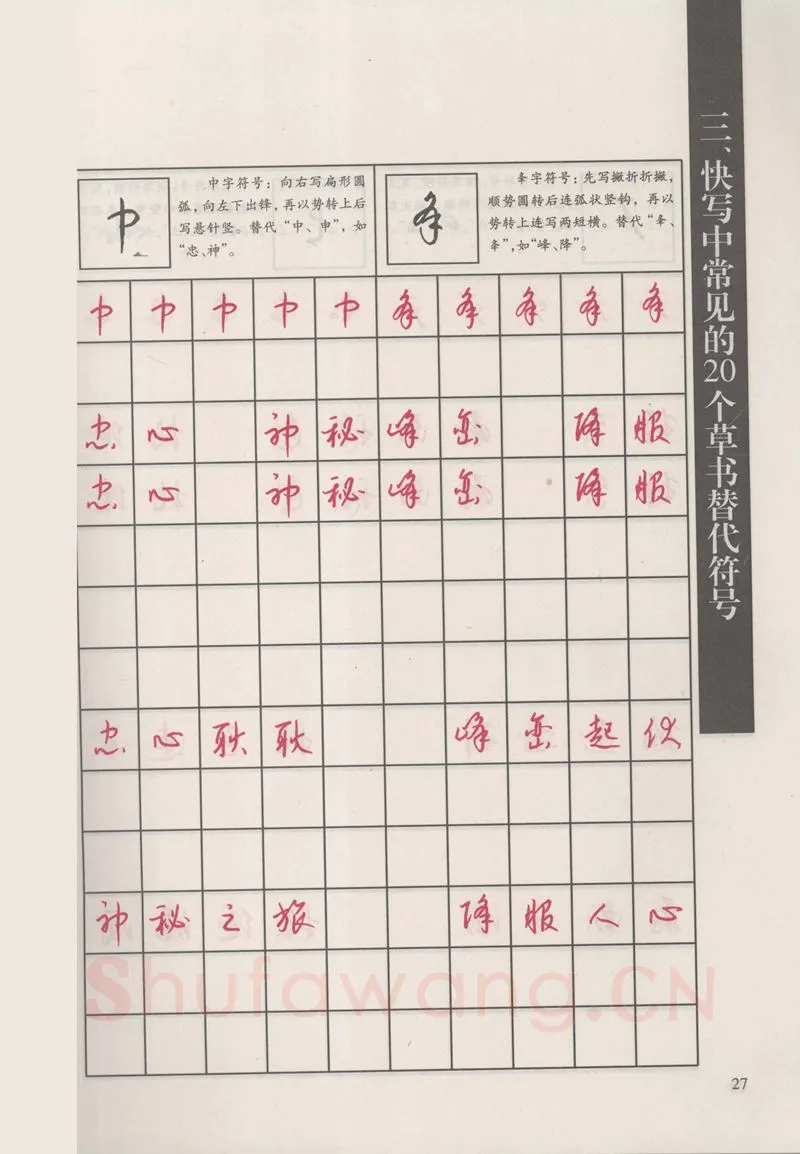 三、快写中常见的20个草书替代符号
中
中字符号：向右写扁形圆
弧，向左下出锋，再以势转上后
写悬针竖。替代“中、申”，如
“忠、神”。
夅
夆字符号：先写撇折折撇，
顺势圆转后连弧状竖钩，再以
势转上连写两短横。替代“夅、
夆”，如“峰、降”。
中 中 中 中 中 夆 夆 夆 夆 夆
忠 心 神 秘 峰 峦 降 服
忠 心 神 秘 峰 峦 降 服
忠 心 耿 耿 峰 峦 起 伏
神 秘 之 旅 降 服 人 心
Shufawang.CN
27